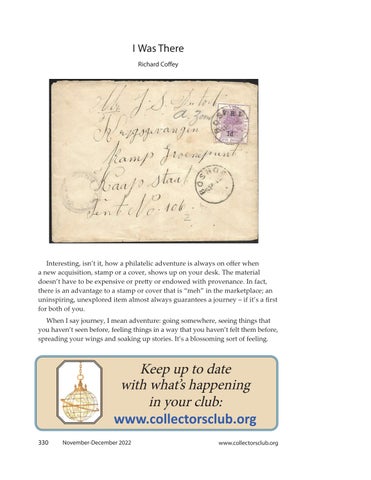 I Was There
Richard Coffey
J. S. Du Toit
Krijgsgevangen
Kamp Groenepunt
Kaap Staat
Tent No. 106
2
BOSHOF
BOSHOF
Interesting, isn't it, how a philatelic adventure is always on offer when
a new acquisition, stamp or a cover, shows up on your desk. The material
doesn't have to be expensive or pretty or endowed with provenance. In fact,
there is an advantage to a stamp or cover that is "meh" in the marketplace; an
uninspiring, unexplored item almost always guarantees a journey – if it's a first
for both of you.
When I say journey, I mean adventure: going somewhere, seeing things that
you haven't seen before, feeling things in a way that you haven't felt them before,
spreading your wings and soaking up stories. It's a blossoming sort of feeling.
Keep up to date
with what's happening
in your club:
www.collectorsclub.org
330 November-December 2022 www.collectorsclub.org